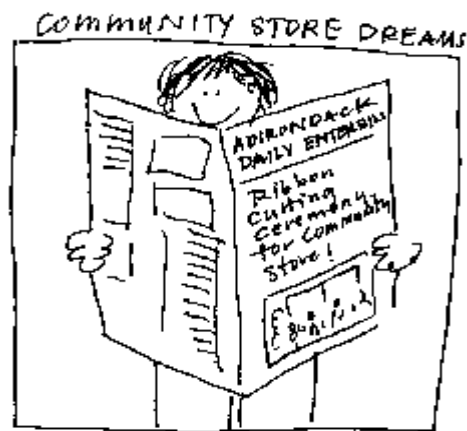 COMMUNITY STORE DREAMS
ADIRONDACK
DAILY ENTERPRISE
Ribbon
Cutting
Ceremony
for Community
Store!